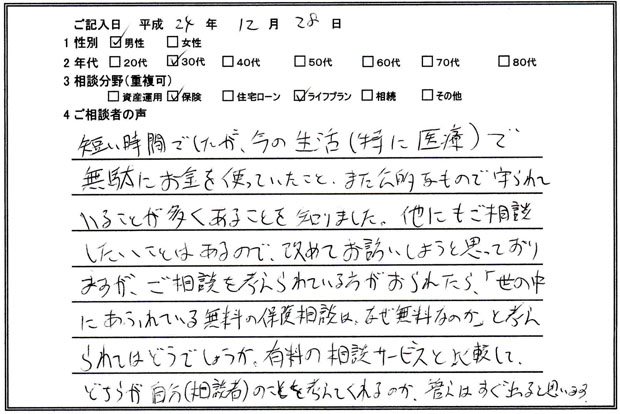 ご記入日 平成 24 年 12 月 28 日
1 性別 ☑男性 □女性
2 年代 □20代 ☑30代 □40代 □50代 □60代 □70代 □80代
3 相談分野(重複可)
□資産運用 ☑保険 □住宅ローン ☑ライフプラン □相続 □その他
4 ご相談者の声
短い時間でしたが、今の生活(特に医療)で
無駄にお金を使っていたこと、また公的なもので守られて
いることが多くあることを知りました。他にもご相談
したいことはあるので、改めてお誘いしようと思っており
ますが、ご相談を考えられている方がおられたら、「世の中
にあふれている無料の保険相談は、なぜ無料なのか」と考え
られてはどうでしょうか。有料の相談サービスと比較して、
どちらが自分(相談者)のことを考えてくれるのか、答えはすぐ出ると思います。